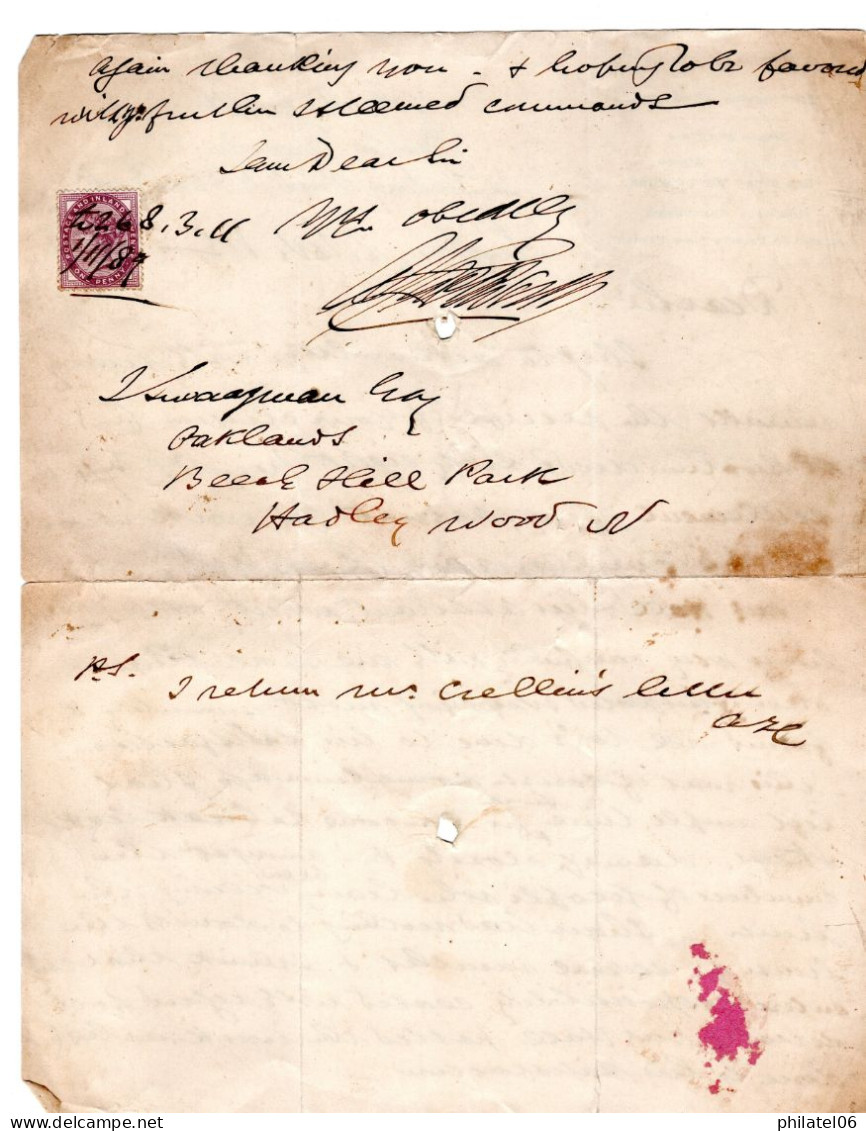 Again thanking you - & hoping to be favored
with yr further esteemed commands
I am Dear Sir
POSTAGE AND INLAND REVENUE
ONE PENNY
£526.8.3.
1/11/87
Yrs obedtly
Esq
Oaklands
Beech Hill Park
Hadley Wood N
P.S.
I return Mr. Crellin's letter
philatel06